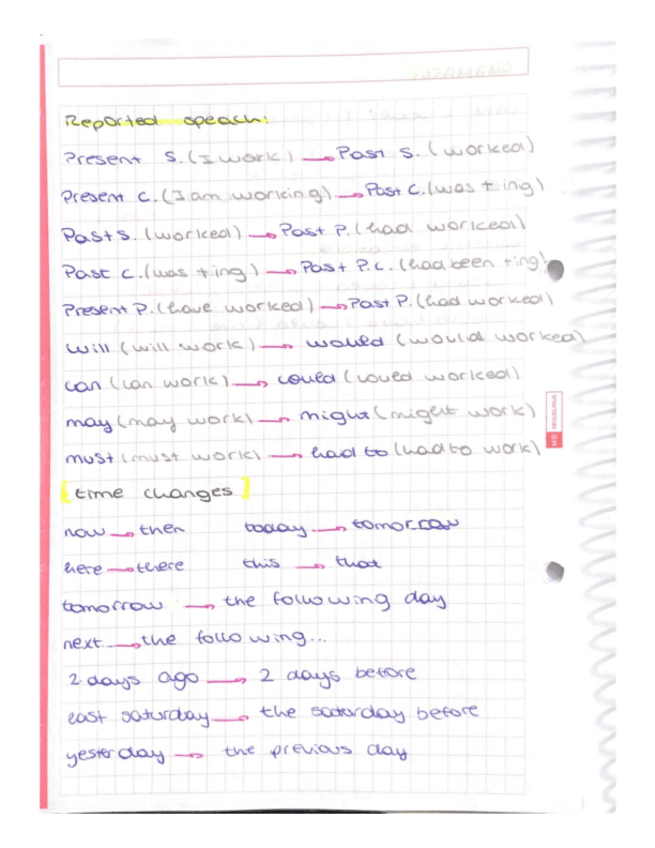 Reported speach:
Present S. (I work) → Past S. (worked)
Present C. (I am working) → Past C. (was + ing)
Past S. (worked) → Past P. (had worked)
Past C. (was +ing) → Past P.C. (had been +ing)
Present P. (have worked) → Past P. (had worked)
will (will work) → would (would worked)
can (can work) → could (could worked)
may (may work) → might (might work)
must (must work) → had to (had to work)
[time changes]
now → then today → tomorrow
here → there this → that
tomorrow → the following day
next → the following...
2 days ago → 2 days before
last saturday → the saturday before
yesterday → the previous day